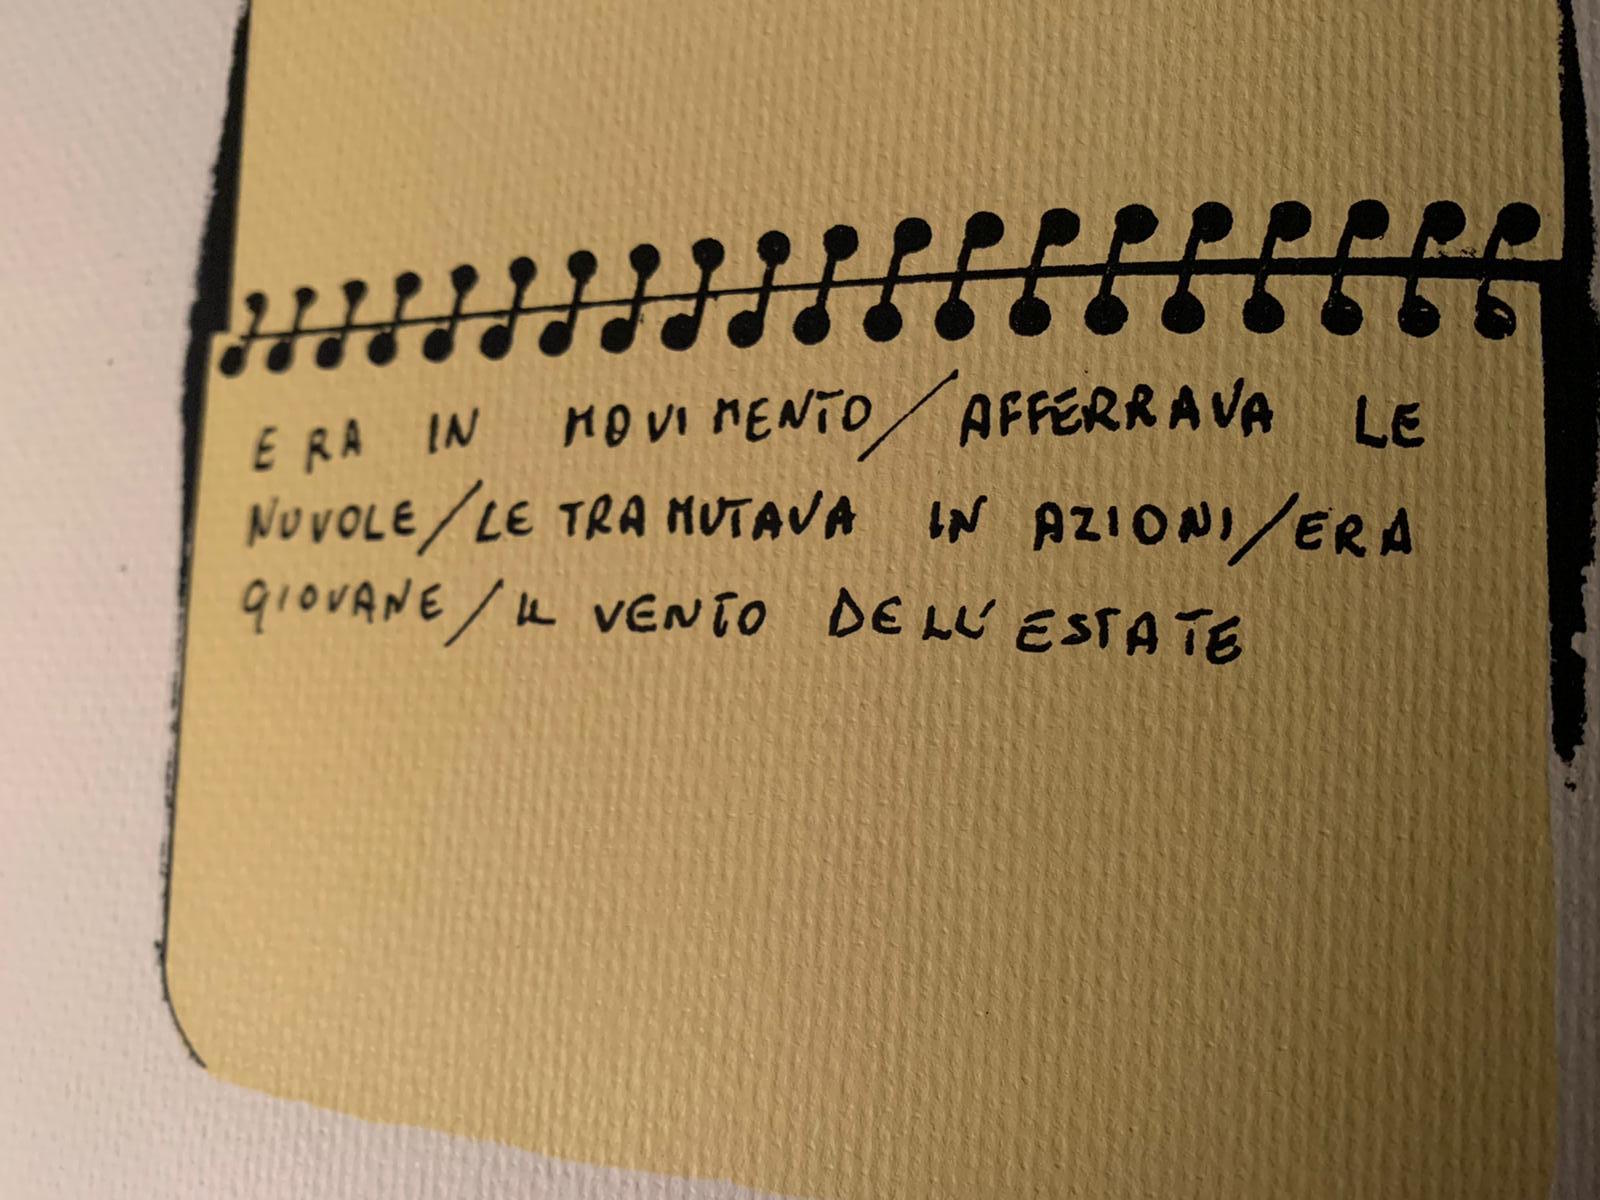 ERA IN MOVIMENTO/AFFERRAVA LE
NUVOLE/LE TRAMUTAVA IN AZIONI/ERA
GIOVANE/IL VENTO DELL'ESTATE